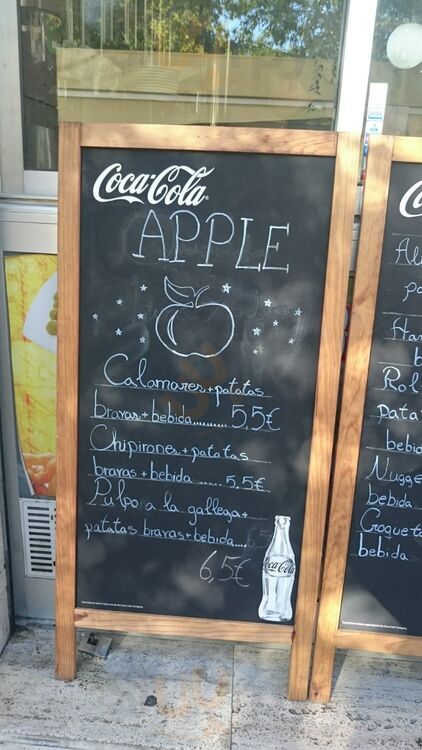 Coca-Cola
APPLE
Calamares + patatas
bravas + bebida.......... 5,5€
Chipirones + patatas
bravas + bebida ...... 5,5€
Pulpo a la gallega +
patatas bravas + bebida.... 6,5
6,5€
Coca-Cola
pa
Ha
b
Rol
pata
bebid
Nugge
bebida
Croqueta
bebida